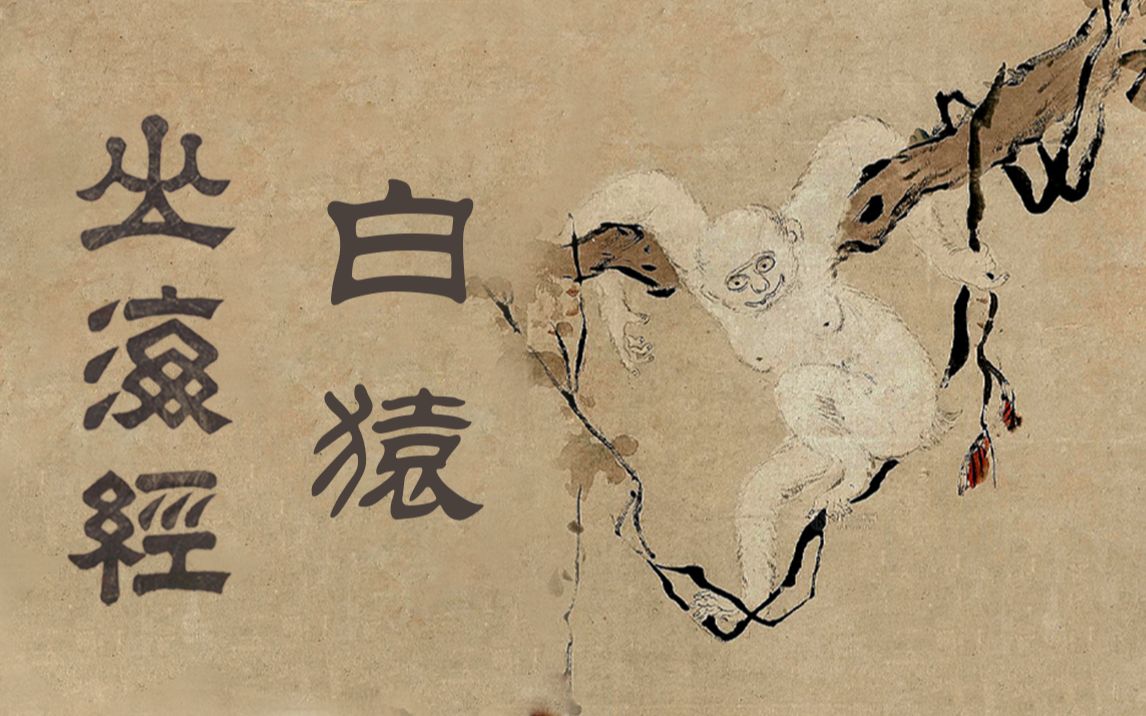 山海經
白猿